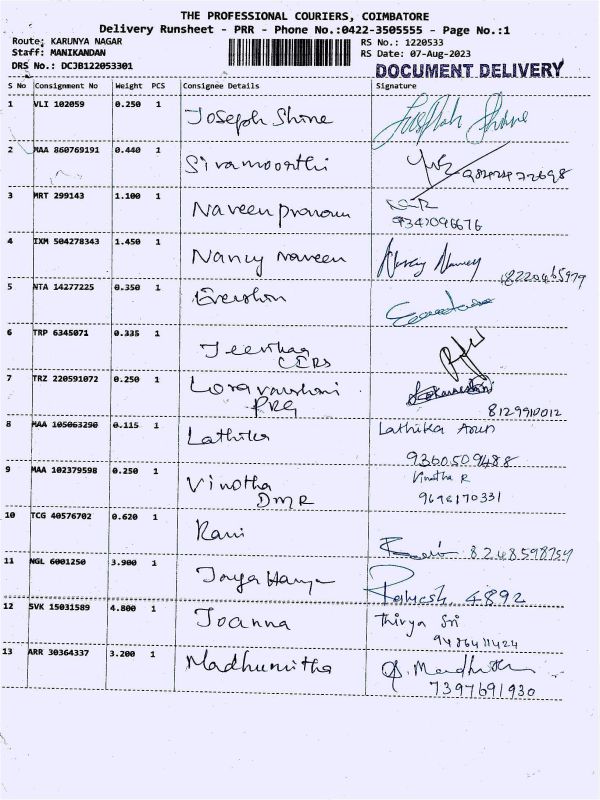 THE PROFESSIONAL COURIERS, COIMBATORE
Delivery Runsheet - PRR - Phone No.:0422-3505555 - Page No.:1
Route: KARUNYA NAGAR
RS No.: 1220533
Staff: MANIKANDAN
RS Date: 07-Aug-2023
DRS No.: DCJB122053301
DOCUMENT DELIVERY
S No Consignment No Weight PCS Consignee Details Signature
1 VLI 102059 0.250 1 Joseph Shine Joseph Shine
2 MAA 860769191 0.440 1 Sivamoorthi
3 MRT 299143 1.100 1 Naveen
9347096676
4 IXM 504278343 1.450 1 Nancy naveen Nancy Nancy
8220465979
5 NTA 14277225 0.350 1
6 TRP 6345071 0.335 1
CERS
7 TRZ 220591072 0.250 1
PRG
8129910012
8 MAA 105063290 0.115 1 Lathika Lathika Arun
9360509488
9 MAA 102379598 0.250 1 Vinotha Vinotha R
DMR 9698170331
10 TCG 40576702 0.620 1 Ravi Ravi 8248598754
11 NGL 6001250 3.900 1 Rakesh 4892
12 SVK 15031589 4.800 1 Joanna Thivya Sri
9486411424
13 ARR 30364337 3.200 1 Madhumitha
7397691930